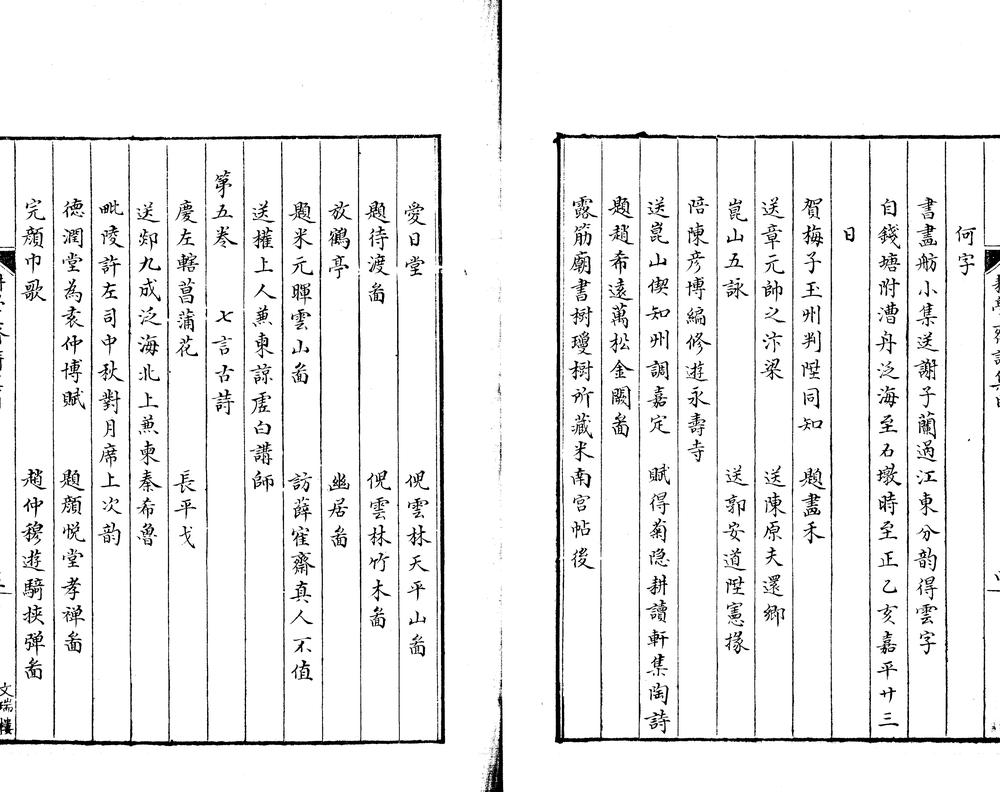 何字
書畫舫小集送謝子蘭過江東分韵得雲字
自錢塘附漕舟泛海至石墩時至正乙亥嘉平廿三
日
賀梅子玉州判陞同知　題畫禾
送章元帥之汴梁　送陳原夫還鄉
崑山五詠　送郭安道陞憲掾
陪陳彥博編修遊永壽寺
送崑山偰知州調嘉定　賦得菊隐耕讀軒集陶詩
題趙希遠萬松金闕啚
露筋廟書樹瓊樹所藏米南宮帖後
愛日堂　倪雲林天平山啚
題待渡啚　倪雲林竹木啚
放鶴亭　幽居啚
題米元暉雲山啚　訪薛寉齋真人不值
送權上人蒹東諒虛白講師
第五卷　七言古詩
慶左轄菖蒲花　長平戈
送郯九成泛海北上蒹柬秦希魯
毗陵許左司中秋對月席上次韵
德潤堂為袁仲博賦　題顏悦堂孝禅啚
完顏巾歌　趙仲穆遊騎挾弹啚
文瑞樓